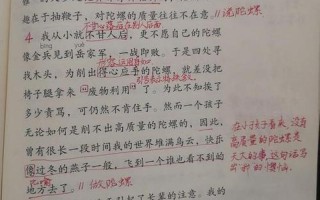 趣在于抽鞭子，对陀螺的质量往往不在意。//说陀螺
4 我从小就不甘人后，更不愿自己的陀螺
像金兵见到岳家军，一战即败。于是四处寻
找木头，为削出得心应手的陀螺，就差没把
椅子腿拿来“废物利用”了。为此不知挨了
多少责骂，可仍然不肯住手。然而一个孩子
无论如何是削不出高质量的陀螺的，因此，
曾有很长一段时间我的世界堆满乌云，快乐
像过冬的燕子一般，飞到一个谁也看不到的
地方去了。//做陀螺
在小孩子看来，没有
高质量的陀螺是
天大的事，这句话写
的懊恼。